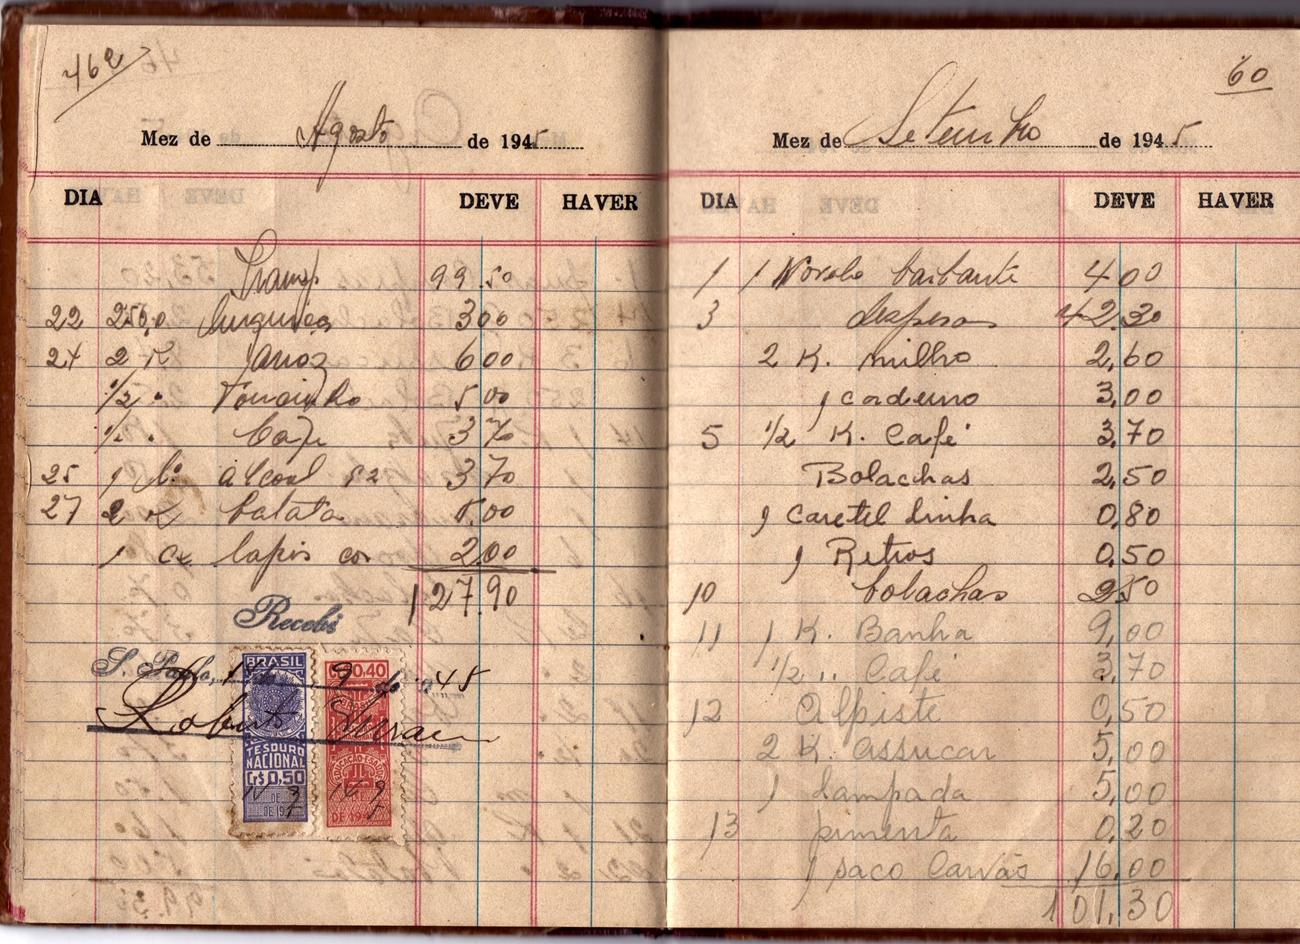 462
Mez de Agosto de 1945
DIA DEVE HAVER
Transp 99.50
22 250,0 linguiça 300
24 2 K arroz 600
1/2 " Toucinho 5,00
1/2 " Café 3,70
25 1 l° alcool 3,70
27 2 K batata 5,00
1 cx lapis cor 2,00
127.90
Recebi
S. Paulo, 14 de 9 de 1945
BRASIL
TESOURO
NACIONAL
Cr$ 0,50
DE
DE 194
0,40
DE 194
Roberto
60
Mez de Setembro de 1945
DIA DEVE HAVER
1 1 Novelo barbante 4,00
3 despesas 42,30
2 K. milho 2,60
1 caderno 3,00
5 1/2 K. Café 3,70
Bolachas 2,50
1 Caretel linha 0,80
1 Retros 0,50
10 bolachas 2,50
11 1 K. Banha 9,00
1/2 " Café 3,70
12 Alpiste 0,50
2 K. assucar 5,00
1 lampada 5,00
13 pimenta 0,20
1 saco Carvão 16,00
101,30